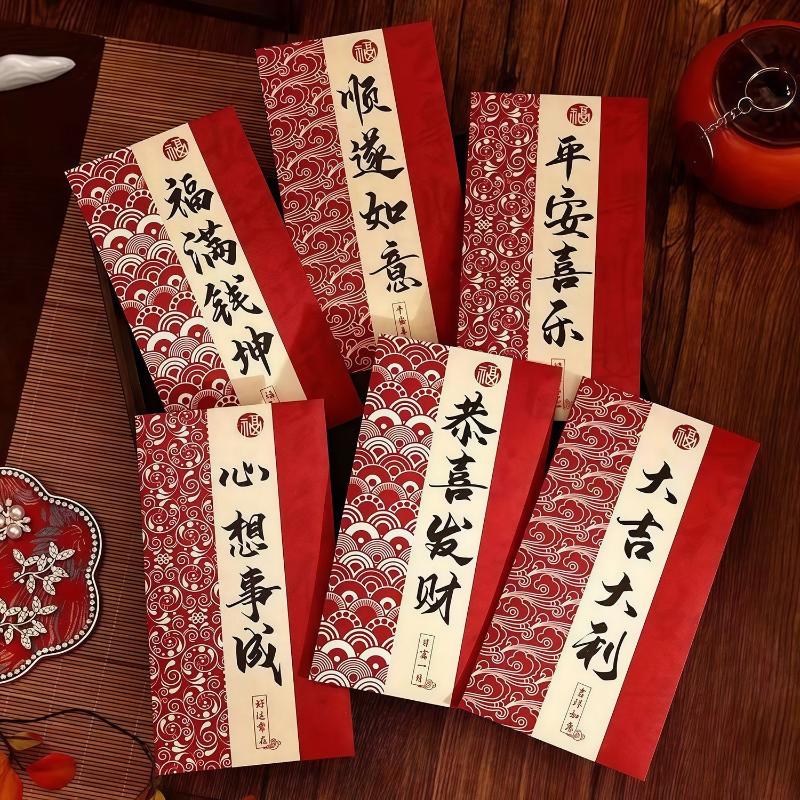 福
福满钱坤
福
顺遂如意
福
平安喜乐
福
心想事成
好运常在
福
恭喜发财
日富一日
福
大吉大利
吉祥如意